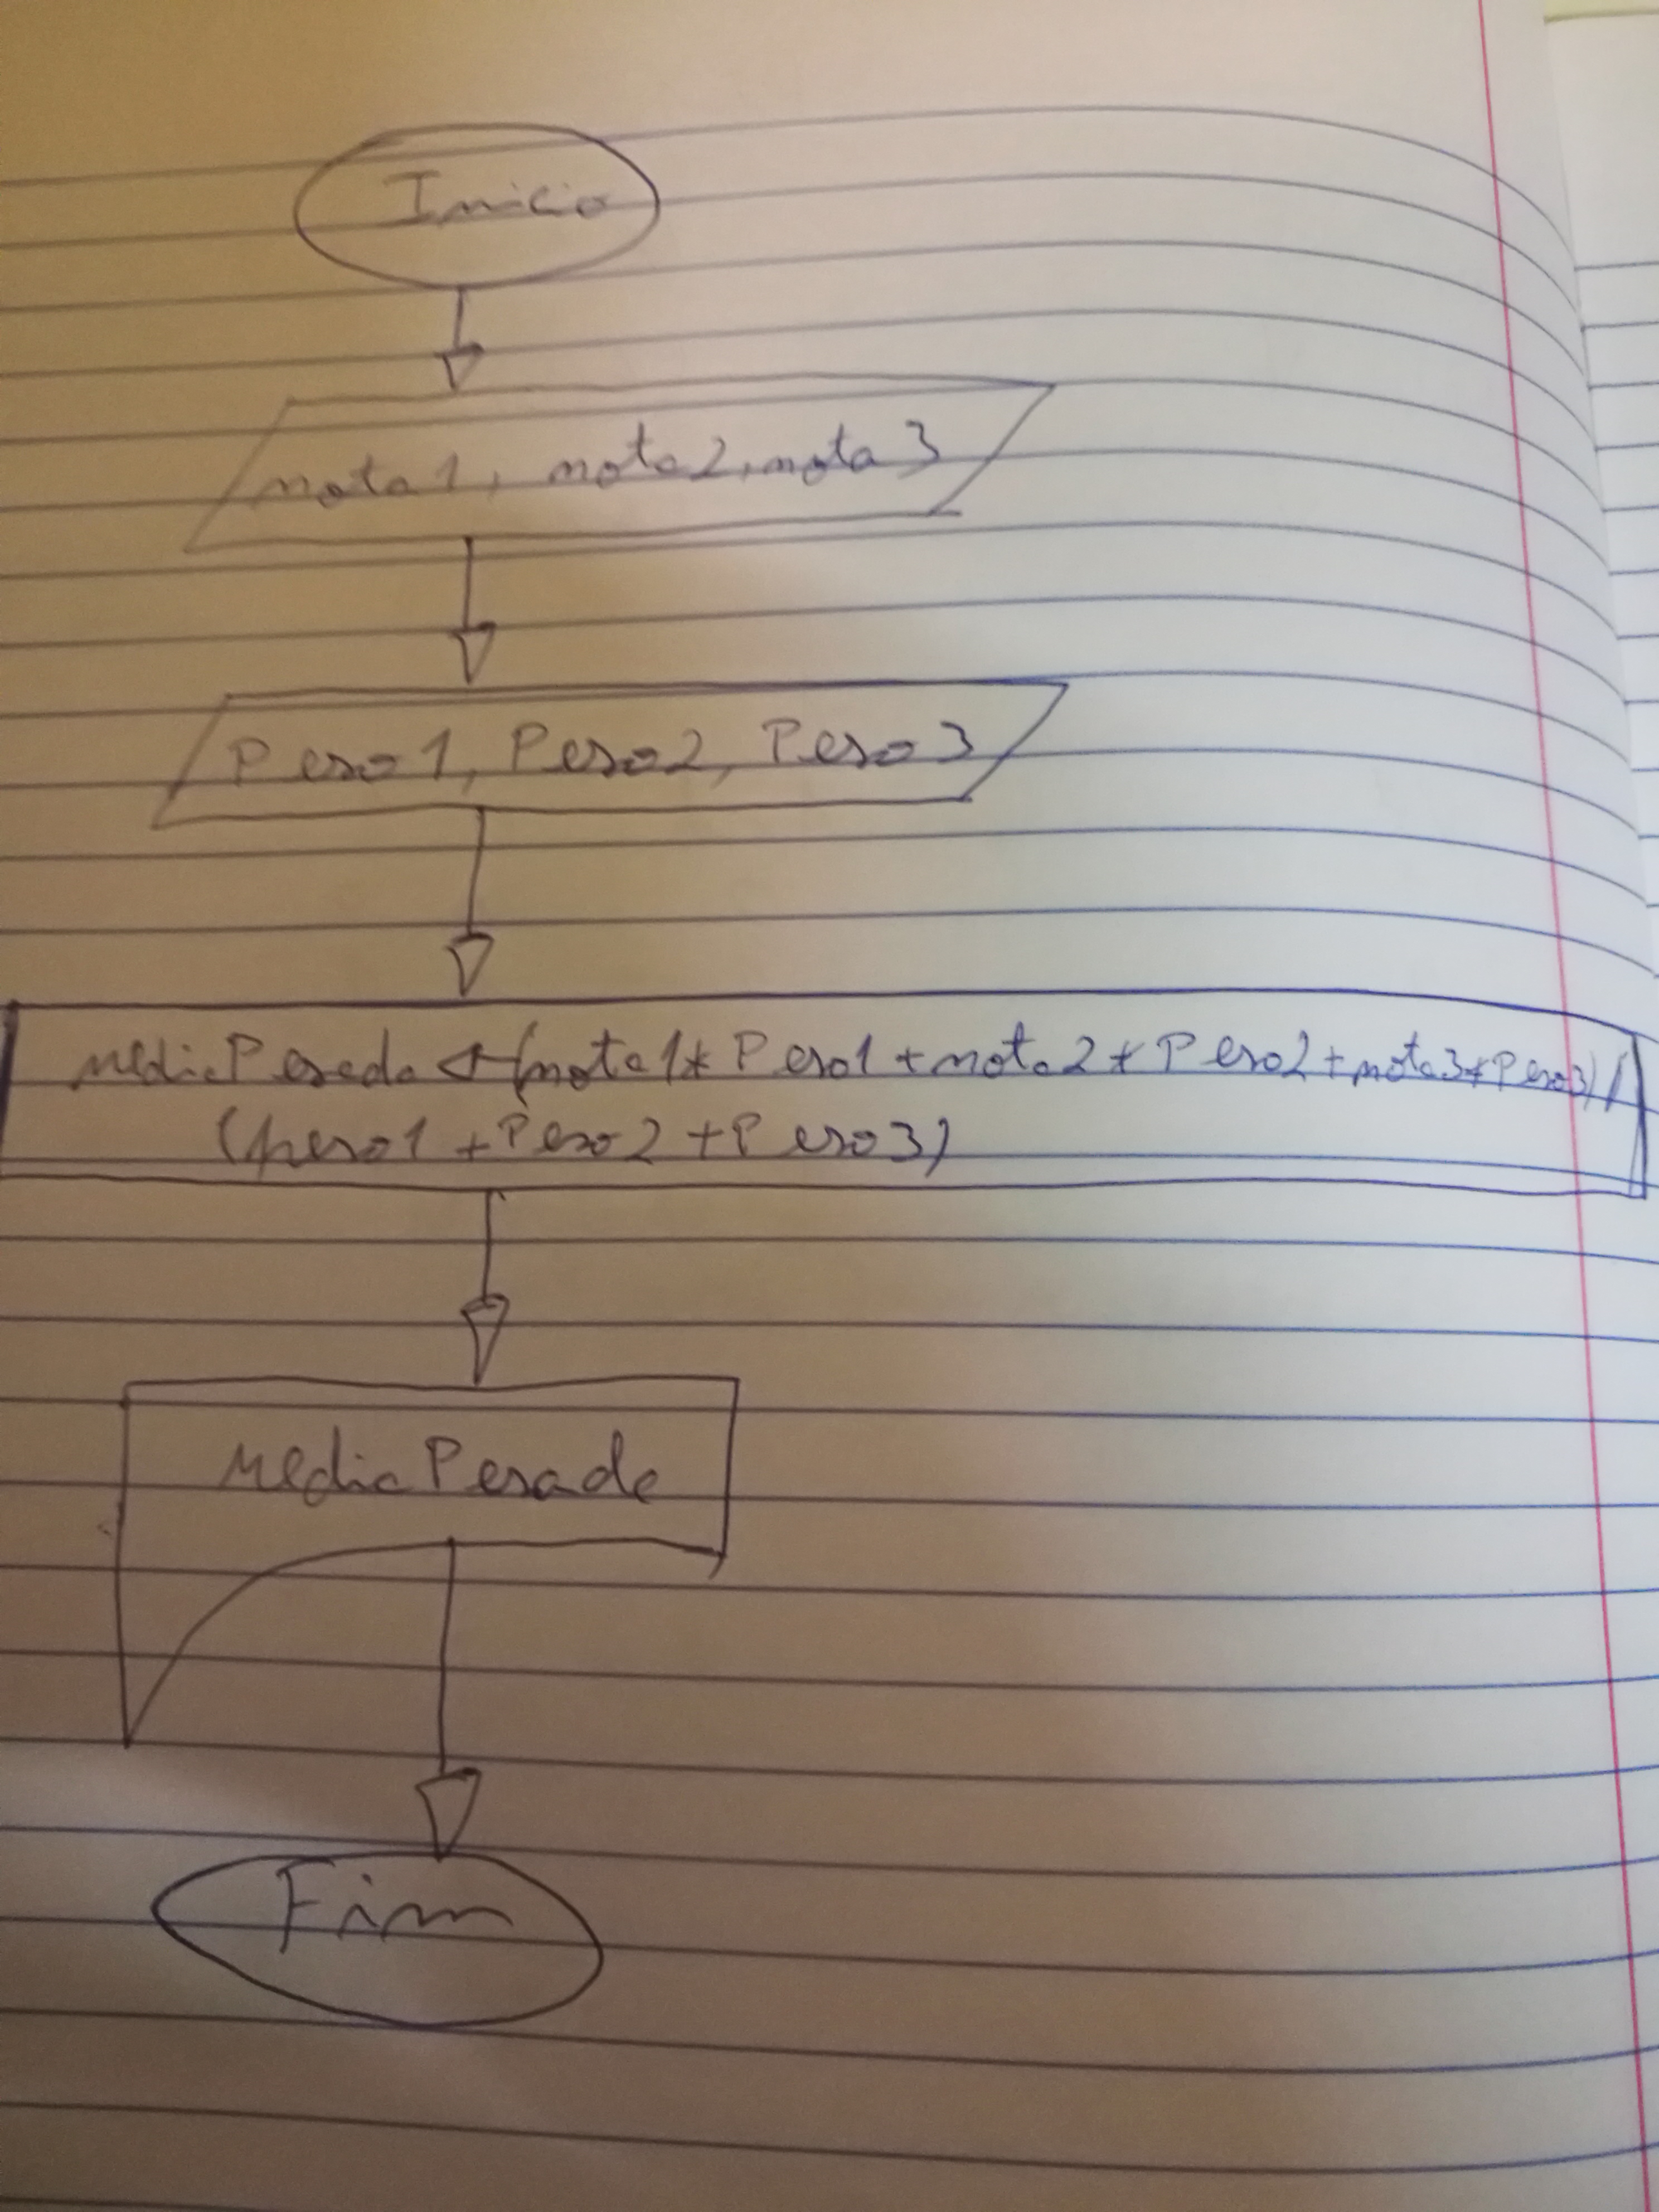 Inicio
nota1, nota2, nota3
Peso1, Peso2, Peso3
mediaPesada ← (nota1 * Peso1 + nota2 * Peso2 + nota3 * Peso3) /
(peso1 + Peso2 + Peso3)
MediaPesada
Fim